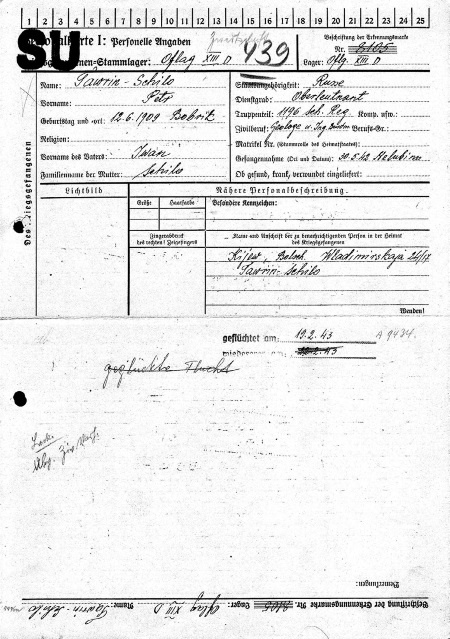 1 2 3 4 5 6 7 8 9 10 11 12 13 14 15 16 17 18 19 20 21 22 23 24 25
SU
Personalkarte I: Personelle Angaben
Kriegsgefangenen-Stammlager: Oflag XIII D
439
Beschriftung der Erkennungsmarke
Nr. 8105
Lager: Oflg. XIII D
Des Kriegsgefangenen
Name: Tawrin-Schilo
Vorname: Petr
Geburtstag und -ort: 12.6.1909 Bobrik
Religion:
Vorname des Vaters: Iwan
Familienname der Mutter: Schilo
Staatsangehörigkeit: Russe
Dienstgrad: Oberleutnant
Truppenteil: 1196 Sch. Reg. Komp. usw.:
Zivilberuf: Geologe u. Ing. Berufs-Gr.:
Matrikel Nr. (Stammrolle des Heimatstaates):
Gefangennahme (Ort und Datum): 30.5.42
Ob gesund, krank, verwundet eingeliefert:
Lichtbild
Nähere Personalbeschreibung
Größe
Haarfarbe
Besondere Kennzeichen:
Fingerabdruck
des rechten! Zeigefingers
Name und Anschrift der zu benachrichtigenden Person in der Heimat
des Kriegsgefangenen
Kijew, Wladimirskaja
Tawrin-Schilo
Wenden!
geflüchtet am: 19.2.43
A 9434.
geglückte Flucht
Bemerkungen:
Beschriftung der Erkennungsmarke Nr. 8105 Lager: Oflag XIII D Name: Tawrin-Schilo